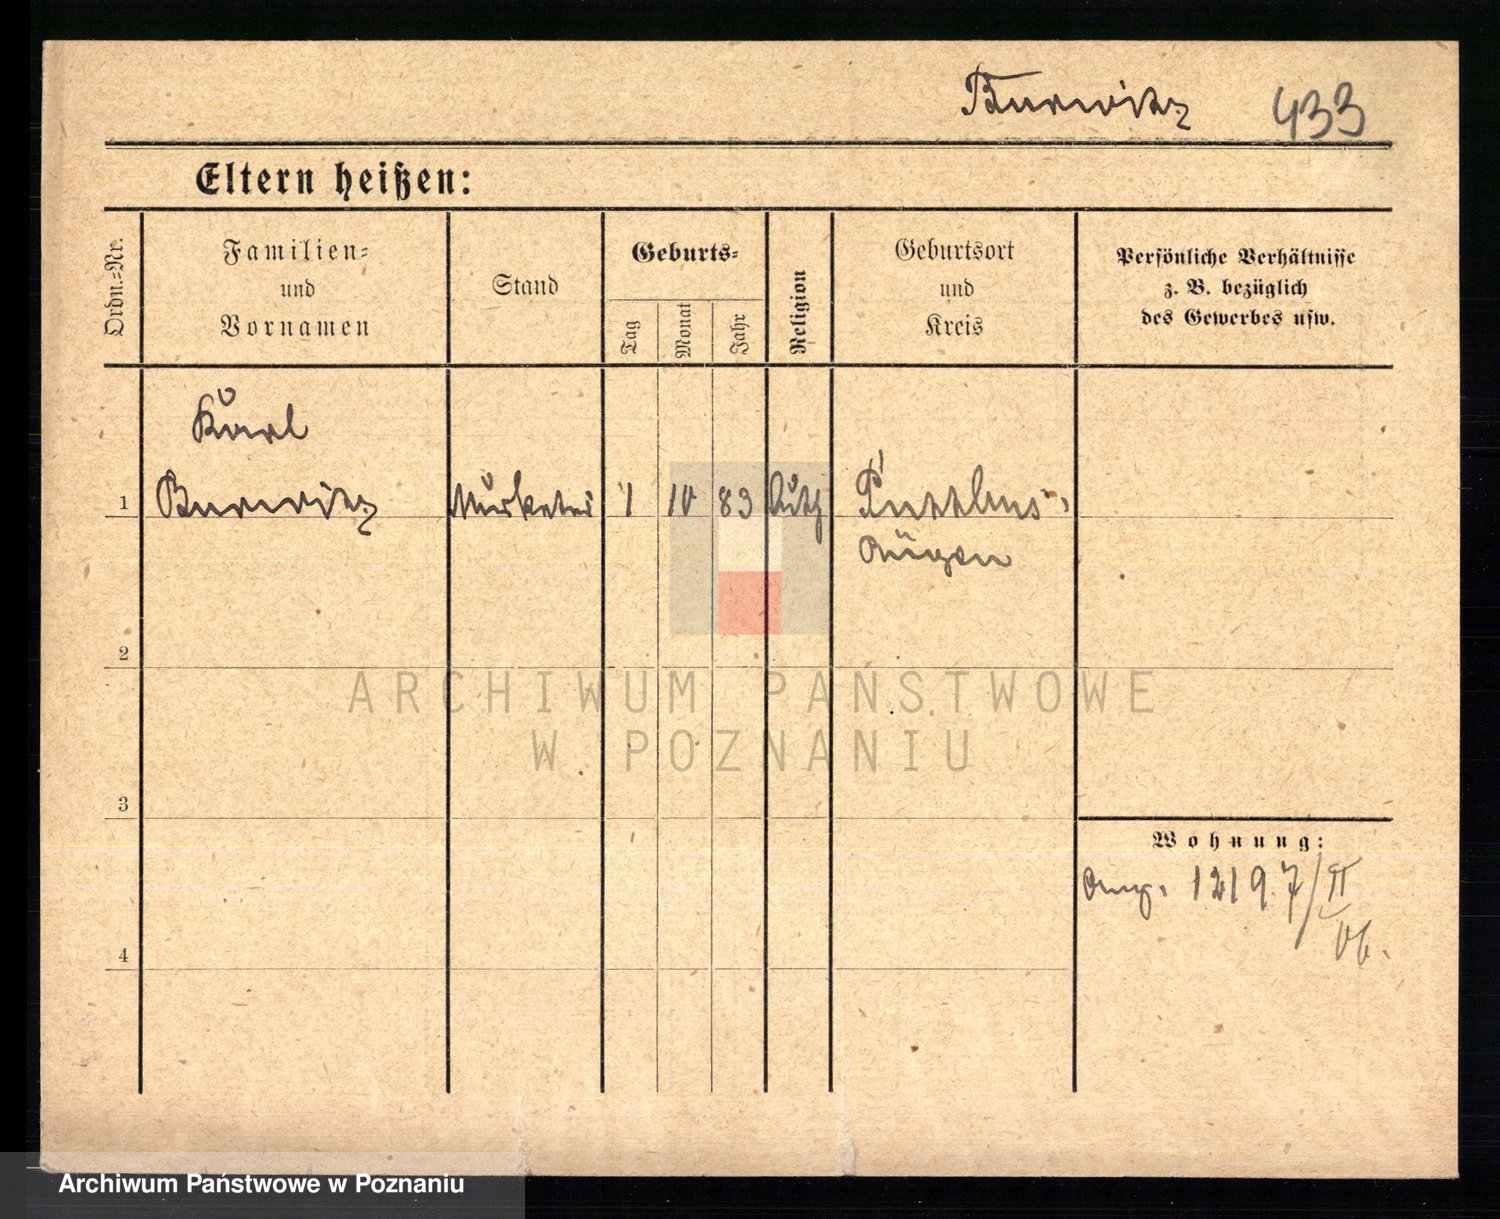 Burwitz 433
Eltern heißen:
Ordn.-Nr.
Familien-
und
Vornamen
Stand
Geburts-
Tag
Monat
Jahr
Religion
Geburtsort
und
Kreis
Persönliche Verhältnisse
z. B. bezüglich
des Gewerbes usw.
Karl
1 Burwitz Musketier 1 10 83 Puttbus
Rügen
2
ARCHIWUM PAŃSTWOWE
W POZNANIU
3
Wohnung:
12197/II
06.
4
Archiwum Państwowe w Poznaniu